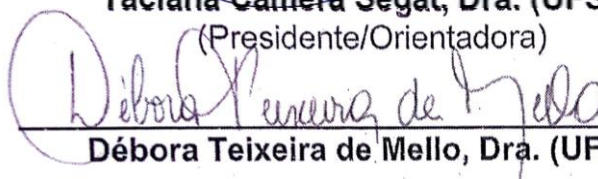 Taciana Camera Segat, Dra. (UFS
(Presidente/Orientadora)
Débora Teixeira de Mello
Débora Teixeira de Mello, Dra. (UF